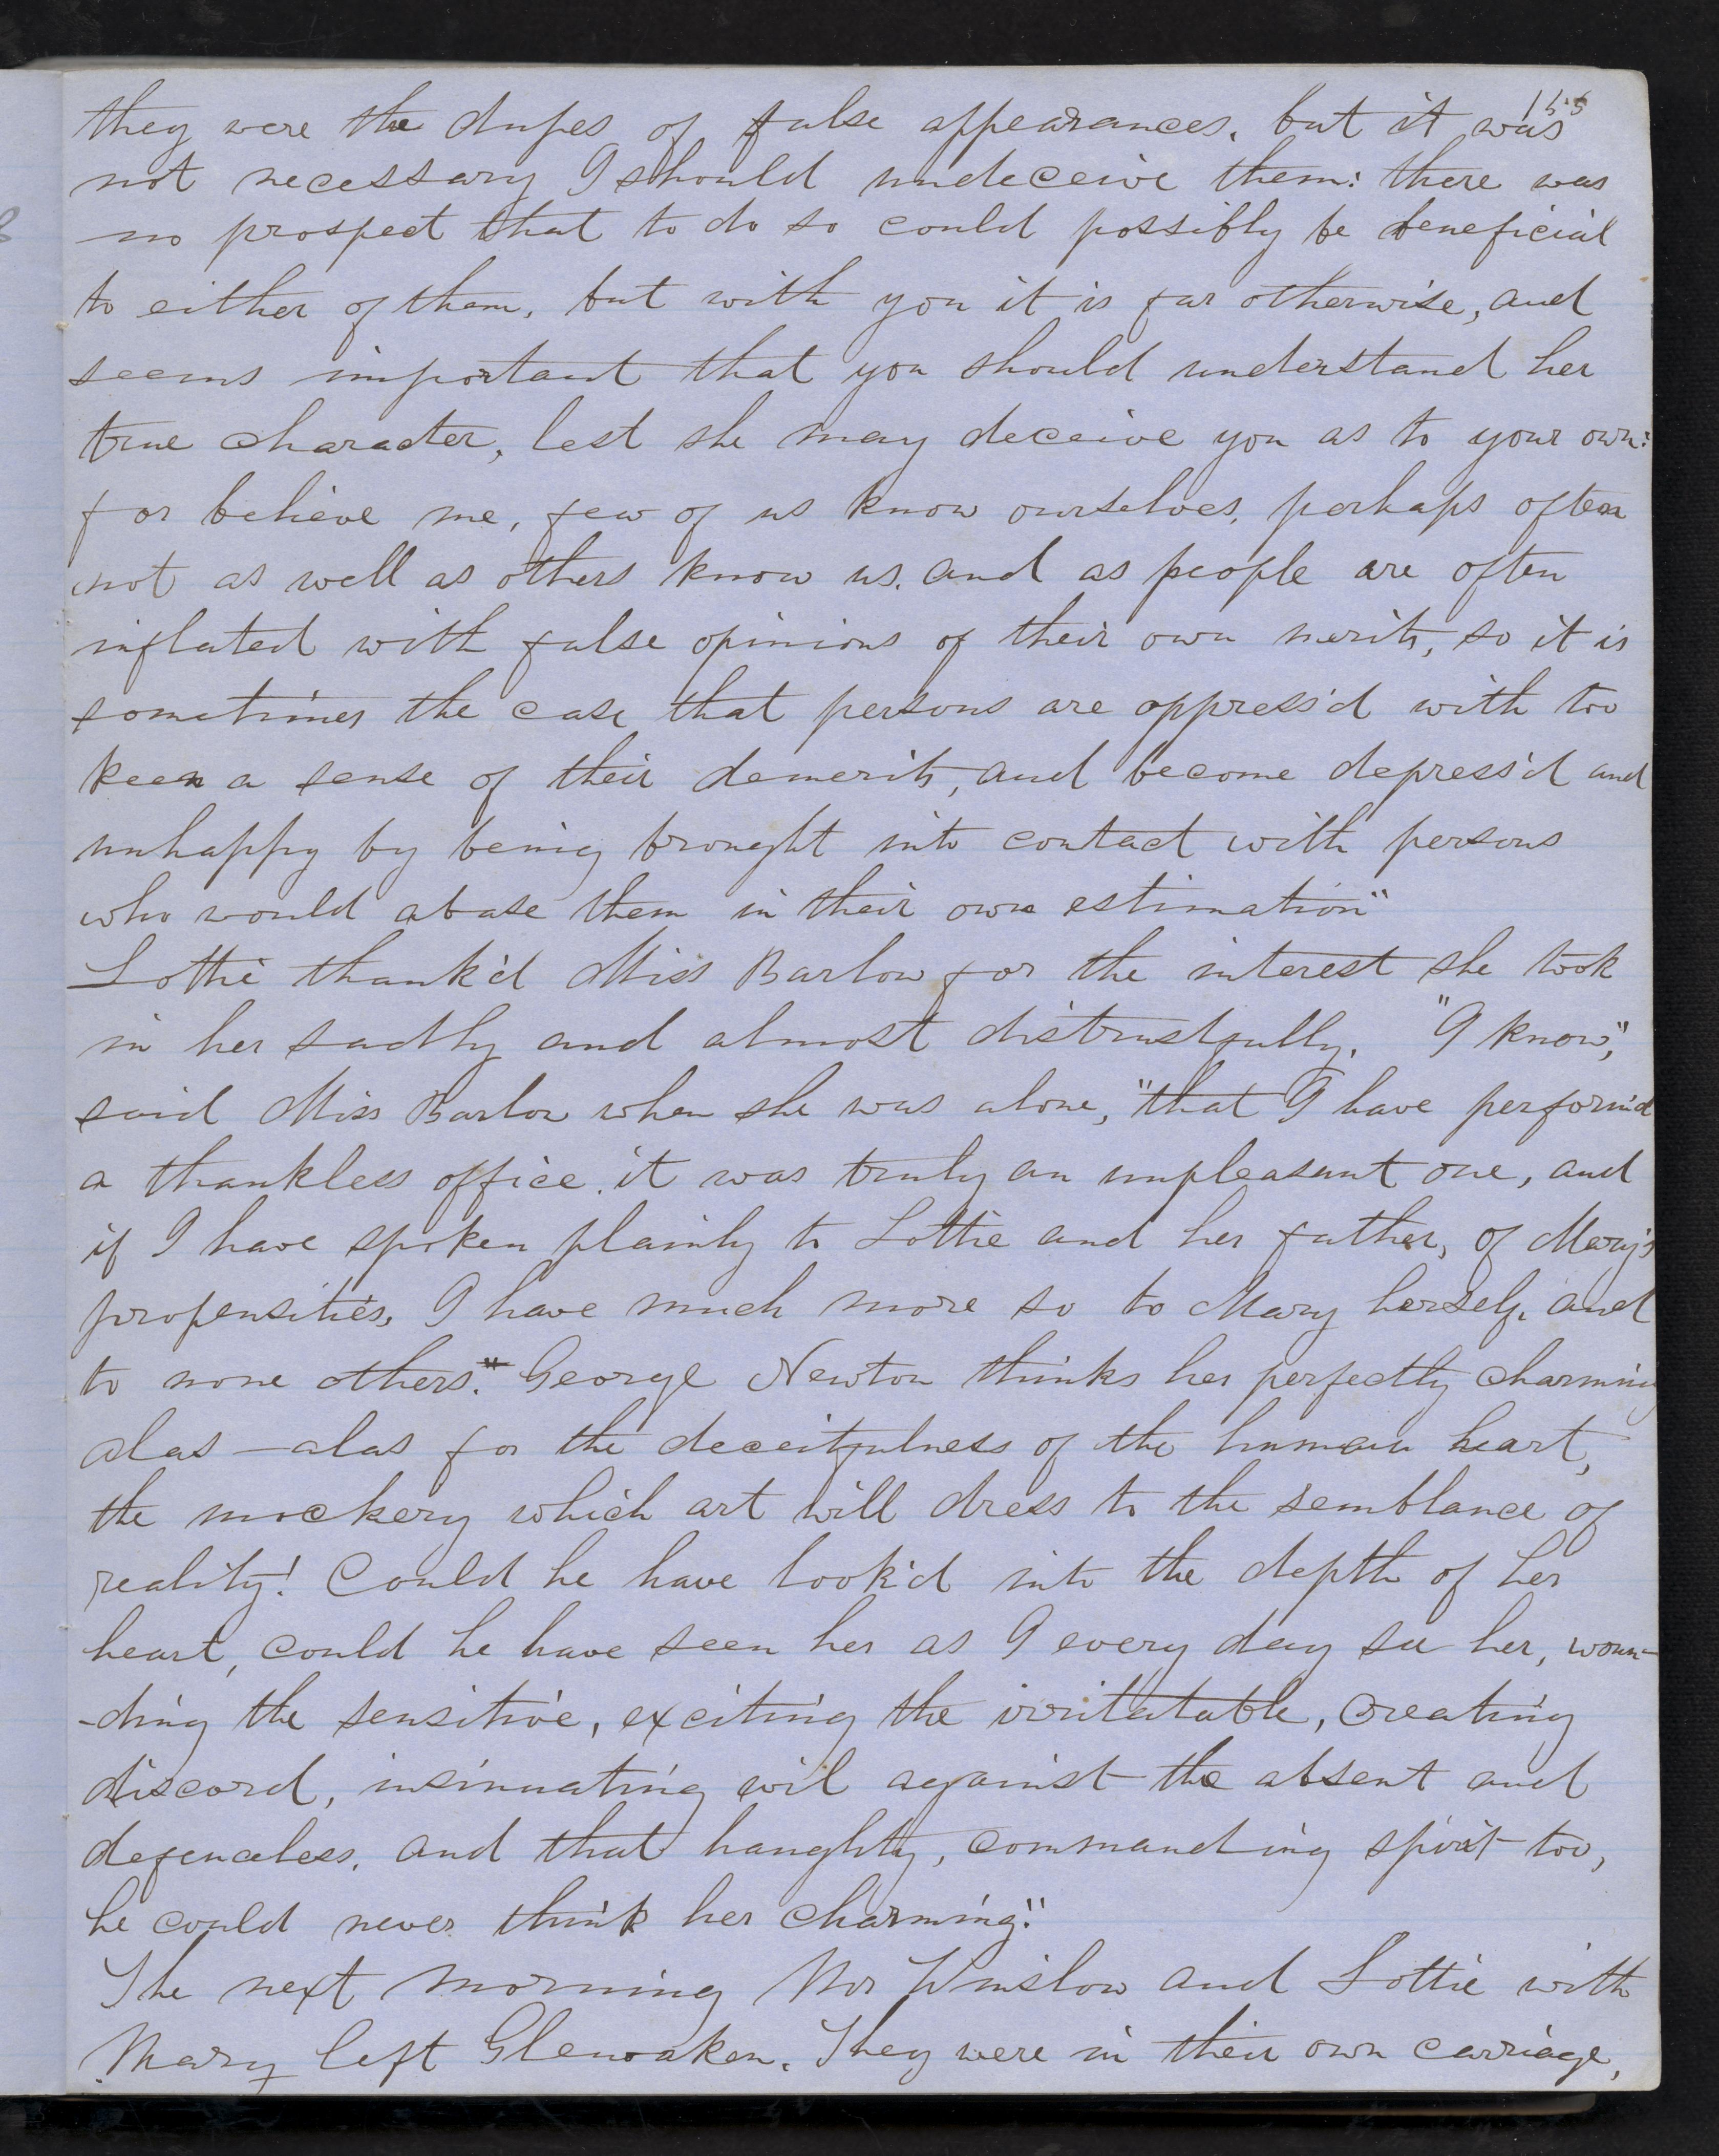 155
they were the dupes of false appearances. but it was
not necessary I should undeceive them: there was
no prospect that to do so could possibly be beneficial
to either of them, but with you it is far otherwise, and
seems important that you should understand her
true character, lest she may deceive you as to your own:
for believe me, few of us know ourselves, perhaps often
not as well as others know us. and as people are often
inflated with false opinions of their own merits, so it is
sometimes the case that persons are oppress'd with too
keen a sense of their demerits, and become depress'd and
unhappy by being brought into contact with persons
who would abase them in their own estimation"
Lottie thank'd Miss Barlow for the interest she took
in her sadly and almost distrustfully. "I know,"
said Miss Barlow when she was alone, "that I have perform'd
a thankless office. it was truly an unpleasant one, and
if I have spoken plainly to Lottie and her father, of Mary's
propensities, I have much more so to Mary herself. and
to none others." George Newton thinks her perfectly charming
alas — alas for the deceitfulness of the human heart,
the mockery which art will dress to the semblance of
reality! Could he have look'd into the depth of her
heart, could he have seen her as I every day see her, woun-
-ding the sensitive, exciting the irritatable, creating
discord, insinuating evil against the absent and
defenceless. and that haughty, commanding spirit too,
he could never think her charming."
The next morning Mr Winslow and Lottie with
Mary left Glenoaken. They were in their own carriage,